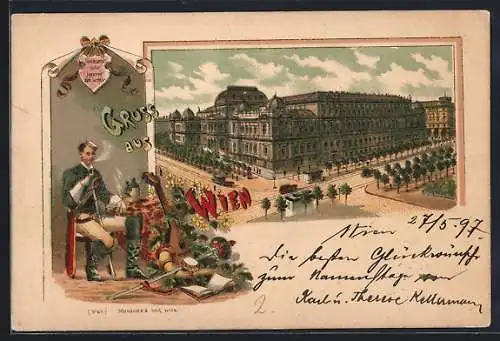 GRUSS
AUS
WIEN
Wien 27/5.97
Die besten Glückwünsche
zum Namenstag von
Karl u. Therese Kellermann
2.